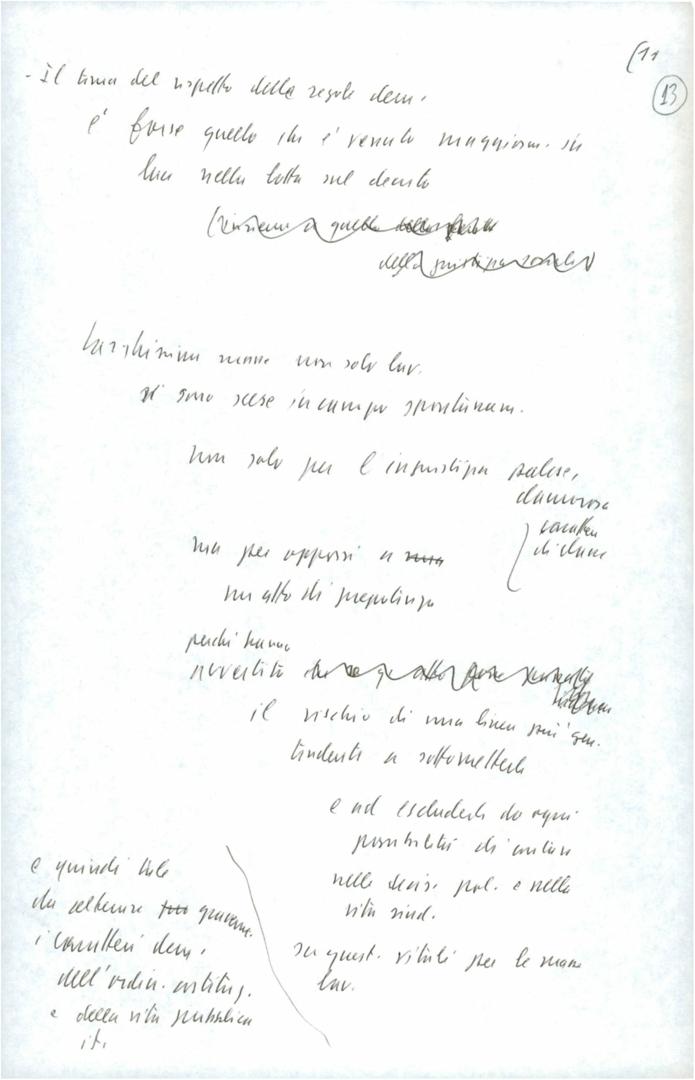 (11
13
- Il tema del rispetto delle regole dem.
è forse quello che è venuto maggiorm. in
luce nella lotta sul decreto
(insieme a quello
della giustizia sociale)
Larghissime masse non solo lav.
si sono scese in campo spontaneam.
non solo per l'ingiustizia palese,
clamorosa
carattere
di classe
ma per opporsi a
un atto di prepotenza
perché hanno
avvertito
il rischio di una linea più gen.
tendente a sottometterle
e ad escluderle da ogni
possibilità di contare
nelle decis. pol. e nella
vita sind.
su quest. vitali per le masse
lav.
e quindi tale
da alterare gravem.
i caratteri dem.
dell'ordin. costituz.
e della vita pubblica
it.